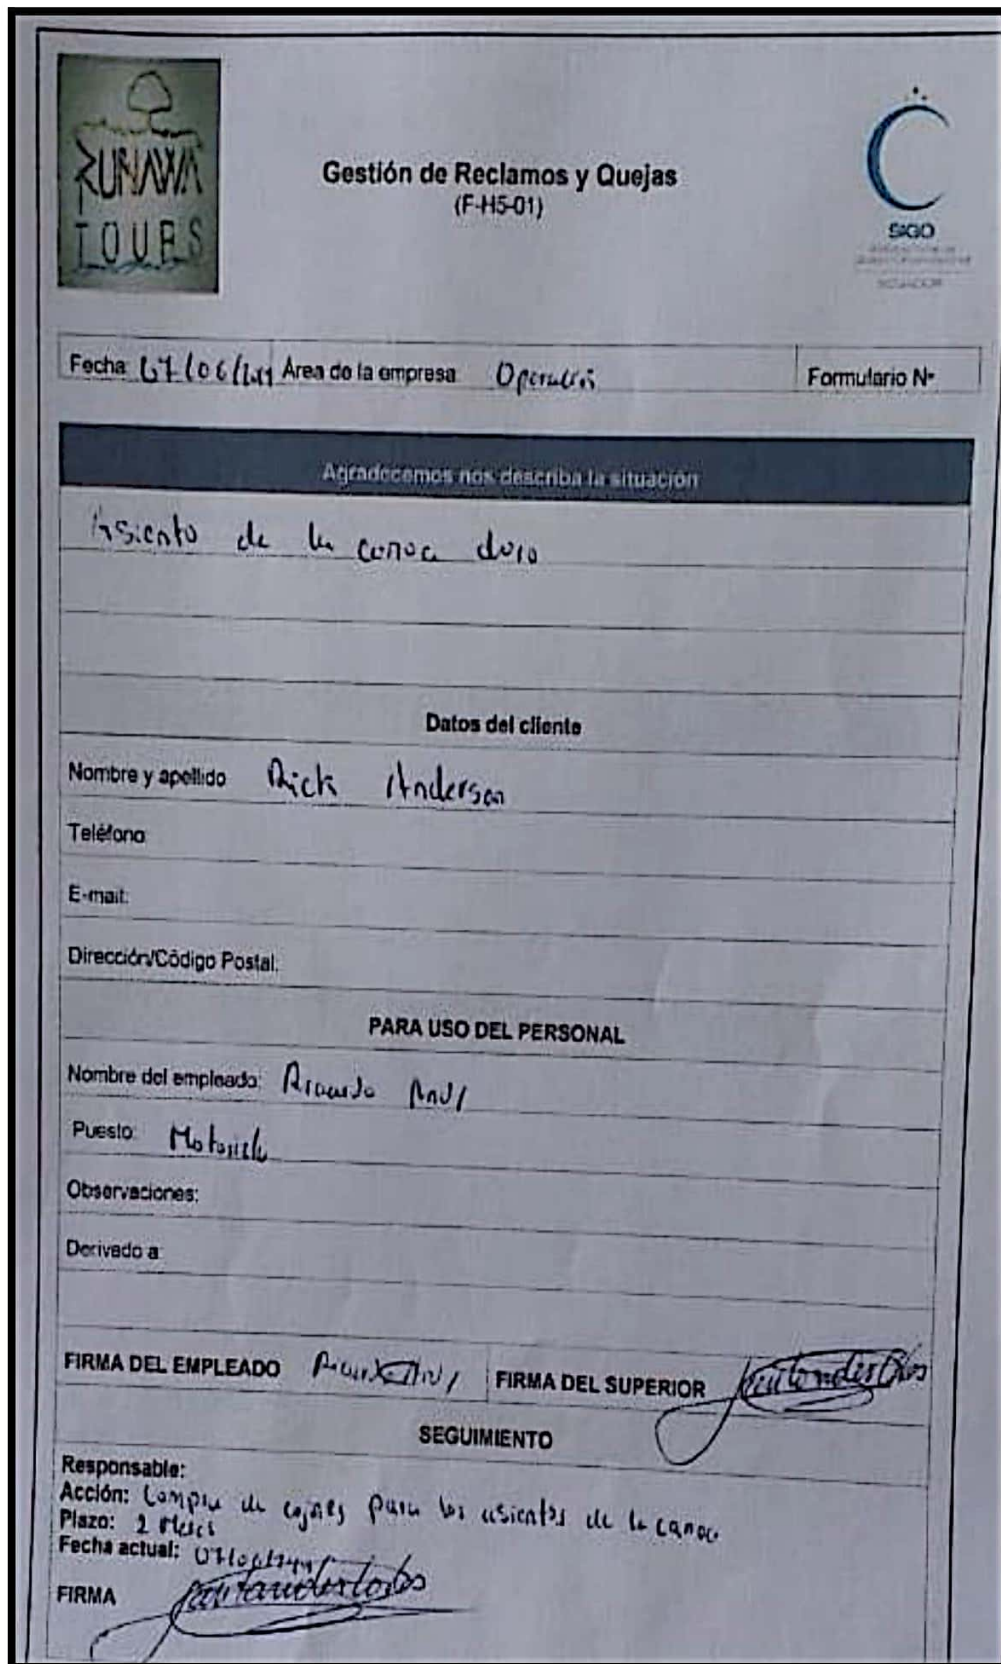 RUNAWA
TOURS
Gestión de Reclamos y Quejas
(F-H5-01)
SIGO
ECUADOR
Fecha: Área de la empresa Operación Formulario Nº
Agradecemos nos describa la situación
Asiento de la canoa duro
Datos del cliente
Nombre y apellido Rick Anderson
Teléfono
E-mail:
Dirección/Código Postal:
PARA USO DEL PERSONAL
Nombre del empleado: Ricardo Andi
Puesto: Motorista
Observaciones:
Derivado a:
FIRMA DEL EMPLEADO FIRMA DEL SUPERIOR
SEGUIMIENTO
Responsable:
Acción: Compra de cojines para los asientos de la canoa
Plazo: 2 Meses
Fecha actual:
FIRMA